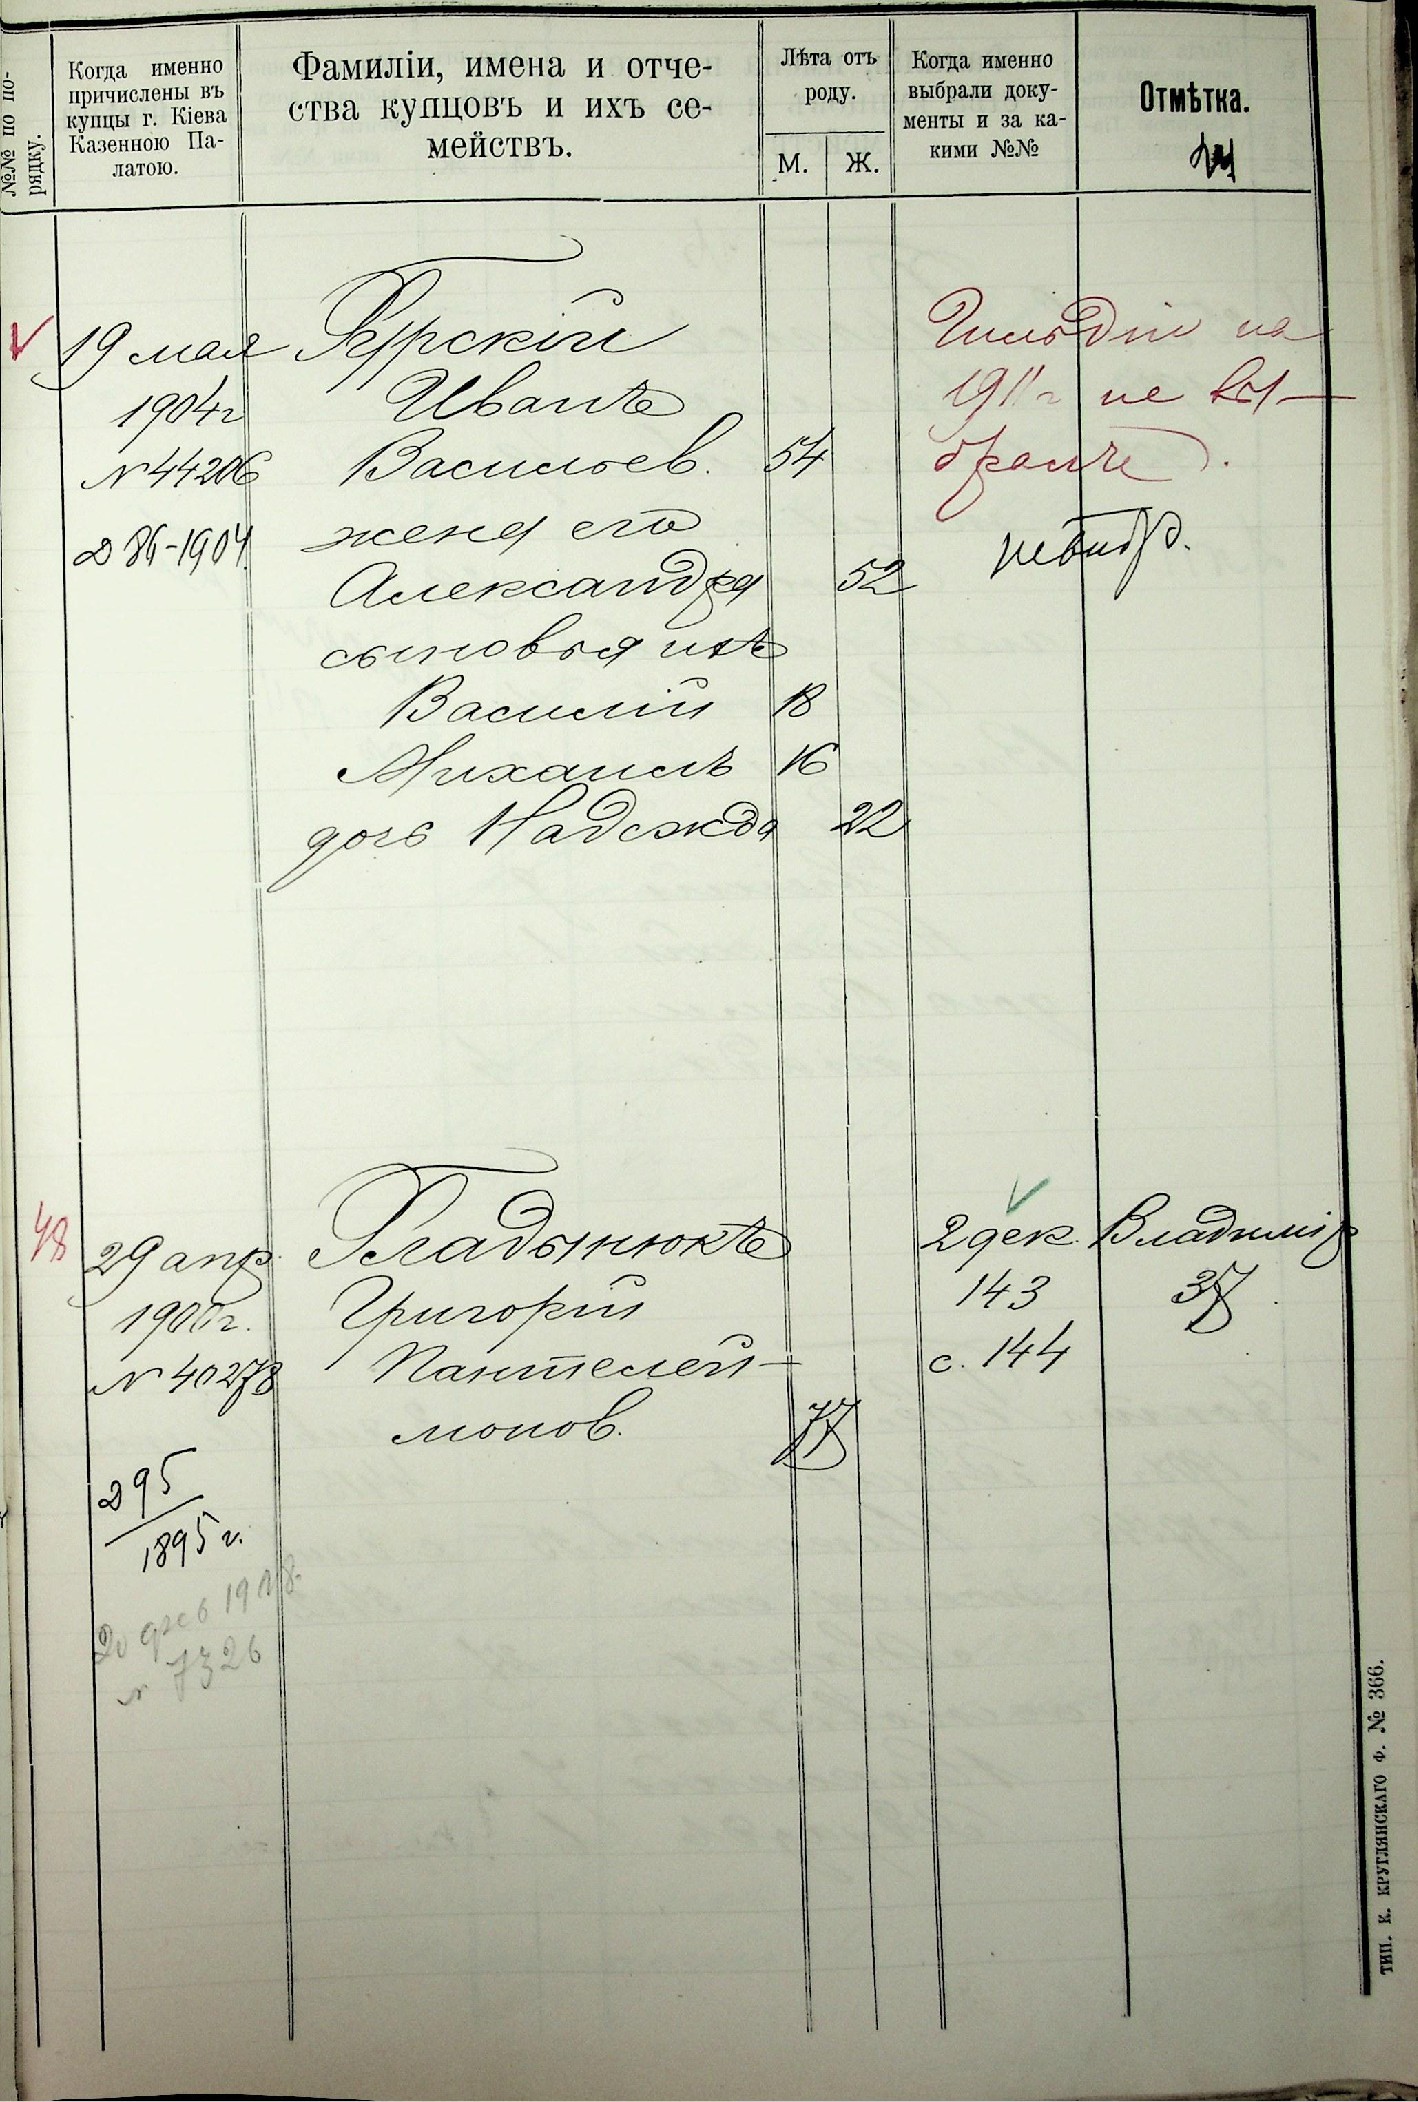 №№ по по-
рядку.
Когда именно
причислены въ
купцы г. Кіева
Казенною Па-
латою.
Фамиліи, имена и отче-
ства купцовъ и ихъ се-
мействъ.
Лѣта отъ
роду.
М.
Ж.
Когда именно
выбрали доку-
менты и за ка-
кими №№
Отмѣтка.
19 мая
1904 г
№ 44206
Д 86-1904.
Гурскій
Иванъ
Васильев. 54
жена его
Александра 52
сыновья ихъ
Василій 18
Михаилъ 16
дочь Надежда 22
Гильдіи на
1911 г не вы-
бралъ.
48
29 апр.
1900 г.
№ 40278
Д 95
1895 г.
20 фев 1908
№ 7326
Гладынюкъ
Григорій
Пантелей-
монов. 77
2 дек.
143
с. 144
Владиміръ
37
ТИП. К. КРУГЛЯНСКАГО Ф. № 366.